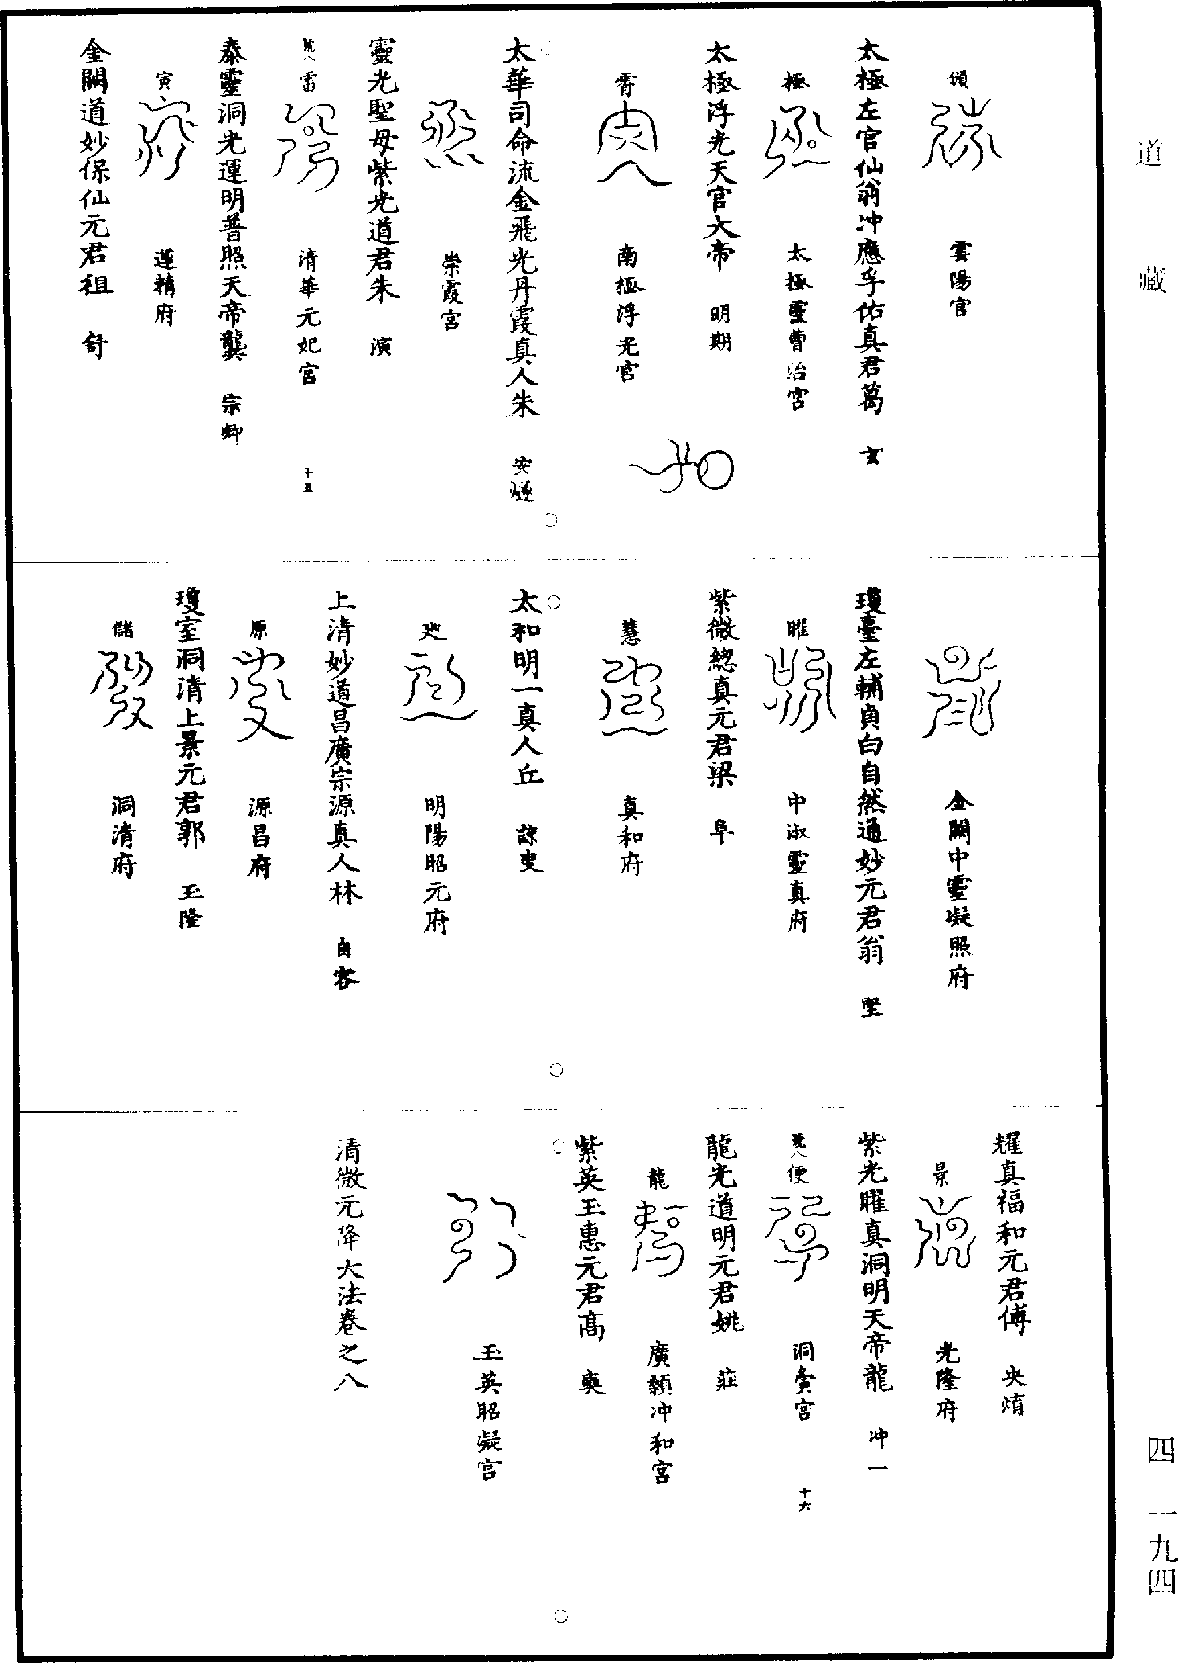 道藏
雲陽宮
太極左官仙翁冲應孚佑真君葛　玄
極
太極靈曹治宮
太極浮光天官大帝　明期
霄
南極浮光宮
太華司命流金飛光丹霞真人朱　安
崇霞宮
靈光聖母紫光道君朱　演
雷
清華元妃宮
十五
泰靈洞光運明普照天帝龔　宗卿
寅
蓮精府
金闕道妙保仙元君祖　舒
金闕中靈凝照府
瓊臺左輔貞白自然通妙元君翁　堅
曜
中淑靈真府
紫微總真元君梁　阜
慧
真和府
太和明一真人丘　諒叟
明陽昭元府
上清妙道昌廣宗源真人林　自容
原
源昌府
瓊室洞清上景元君郭　玉隆
儲
洞清府
耀真福和元君傅　央焴
景
光隆府
紫光曜真洞明天帝龍　冲一
便
洞貪宮
十六
龍光道明元君姚　莊
龍
廣顥冲和宮
紫英玉惠元君高　奭
玉英昭凝宮
清微元降大法卷之八
四　一九四